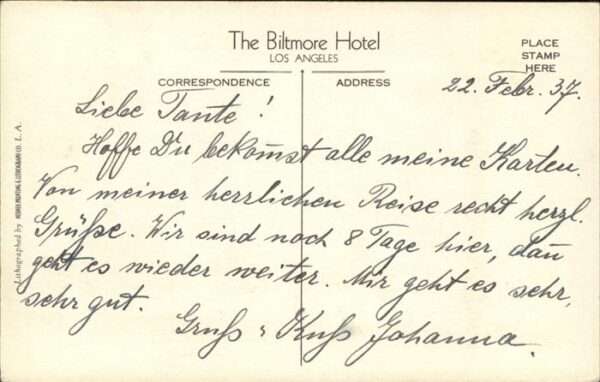 The Biltmore Hotel
LOS ANGELES
PLACE
STAMP
HERE
CORRESPONDENCE
ADDRESS
22. Febr. 37.
Liebe Tante!
Hoffe Du bekom̅st alle meine Karten.
Von meiner herrlichen Reise recht herzl.
Grüße. Wir sind noch 8 Tage hier, dan̅
geht es wieder weiter. Mir geht es sehr,
sehr gut.
Gruß u Kuß Johanna.
Lithographed by L. A.